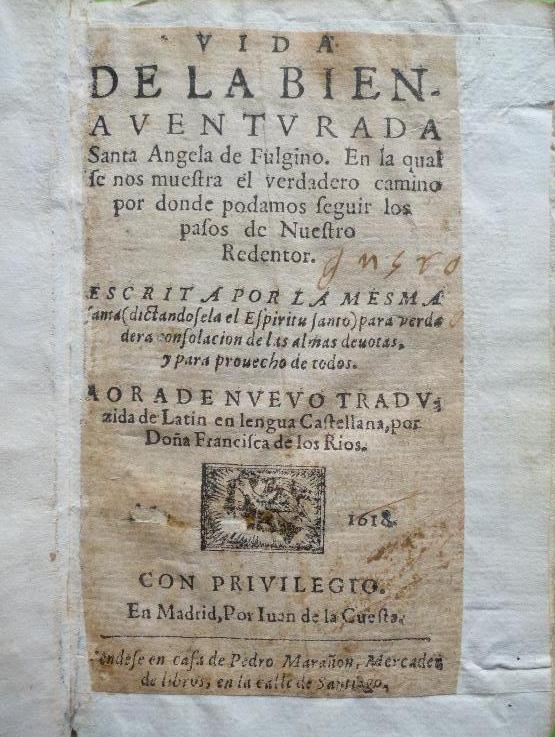 VIDA
DE LA BIEN-
AVENTVRADA
Santa Angela de Fulgino. En la qual
ſe nos mueſtra el verdadero camino
por donde podamos ſeguir los
paſos de Nueſtro
Redentor.
ESCRITA POR LA MESMA
ſanta (dictandoſela el Eſpiritu ſanto) para verda
dera conſolacion de las almas deuotas,
y para prouecho de todos.
AORA DE NVEVO TRADV-
zida de Latin en lengua Caſtellana, por
Doña Franciſca de los Rios.
1618.
CON PRIVILEGIO.
En Madrid, Por Iuan de la Cueſta.
Vendeſe en caſa de Pedro Marañon, Mercader
de libros, en la calle de Santiago.